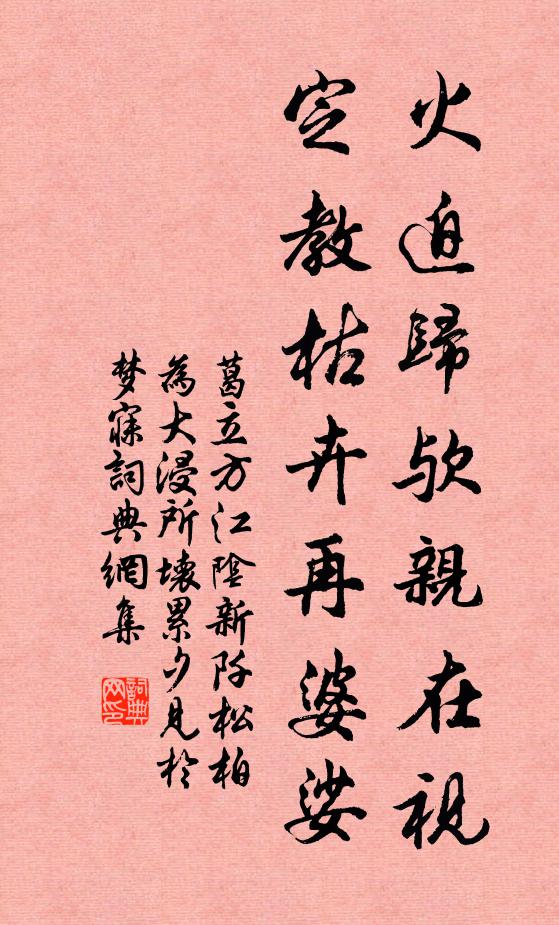 火迫歸歟親在視
定教枯卉再婆娑
葛立方江陰新阡松柏
為大浸所壞累夕見於
梦寐詞典網集
詞典网印